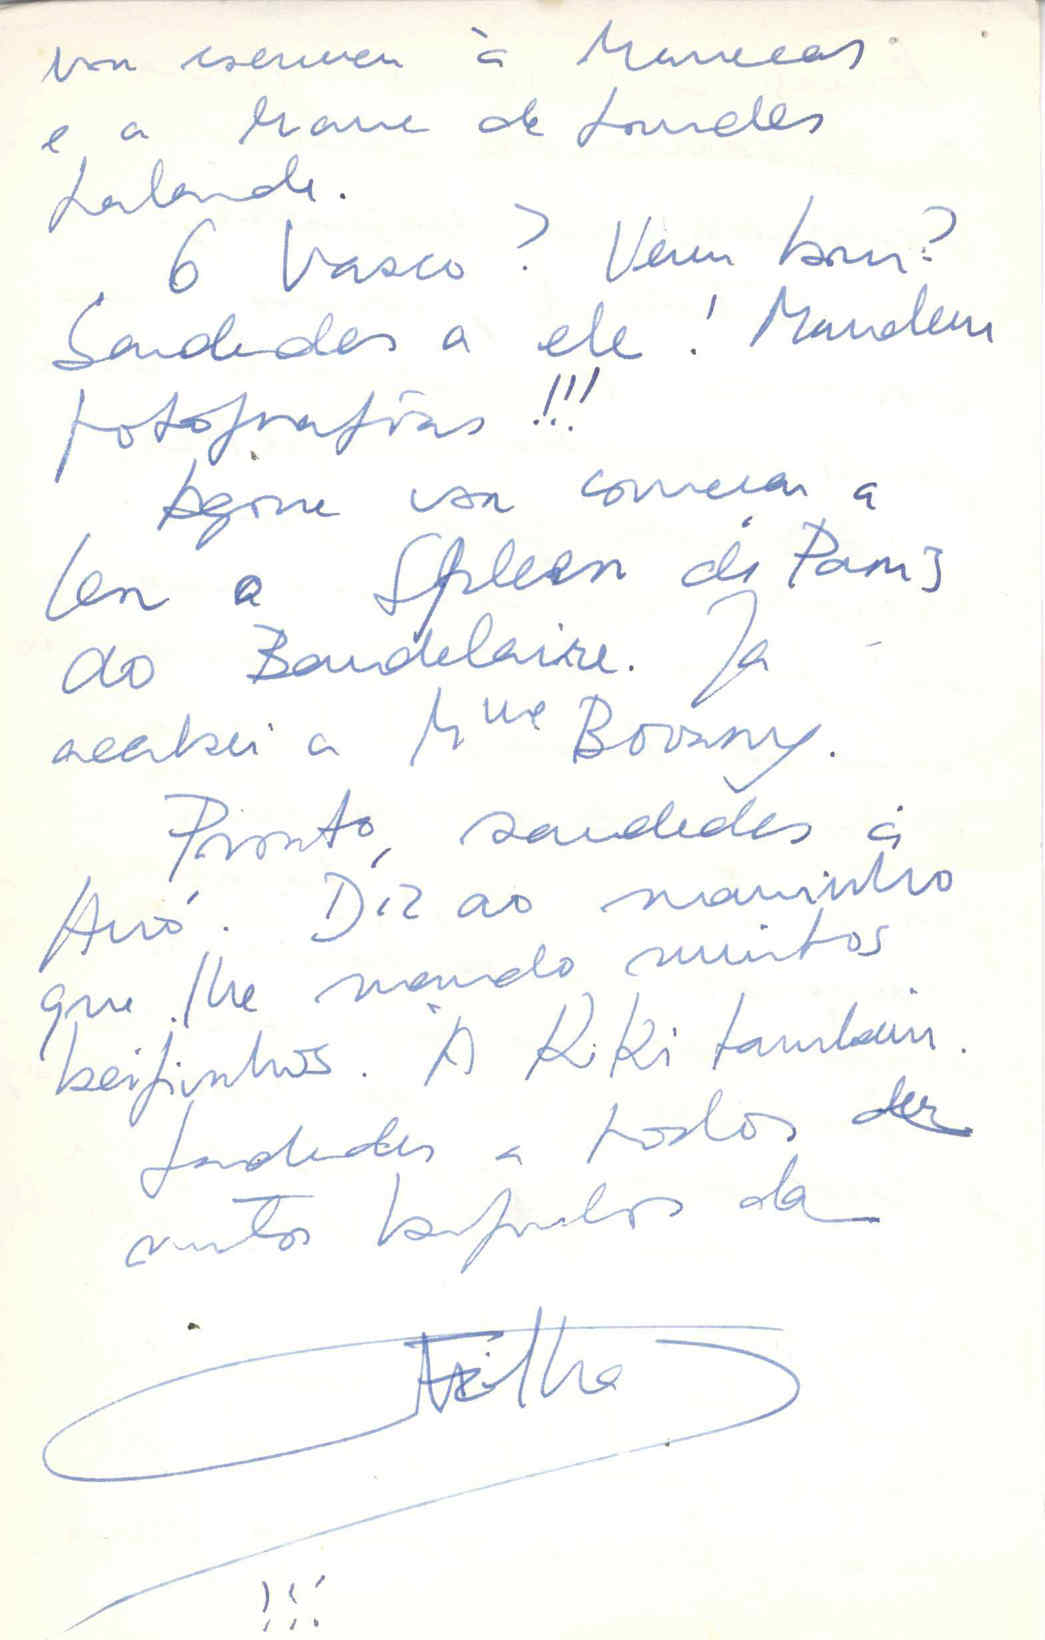 vou escrever à Marrecas
e a Marie de Lourdes
Lalande.
O Vasco? Vem bom?
Saudades a ele! Mandem
fotografias!!!
Agora vou começar a
ler o Spleen de Paris
do Baudelaire. Já
acabei a Mme Bovary.
Pronto, saudades à
Avó. Diz ao maninho
que lhe mando muitos
beijinhos. À Kiki também.
Saudades a todos
muitos beijinhos da
Filha
!!!